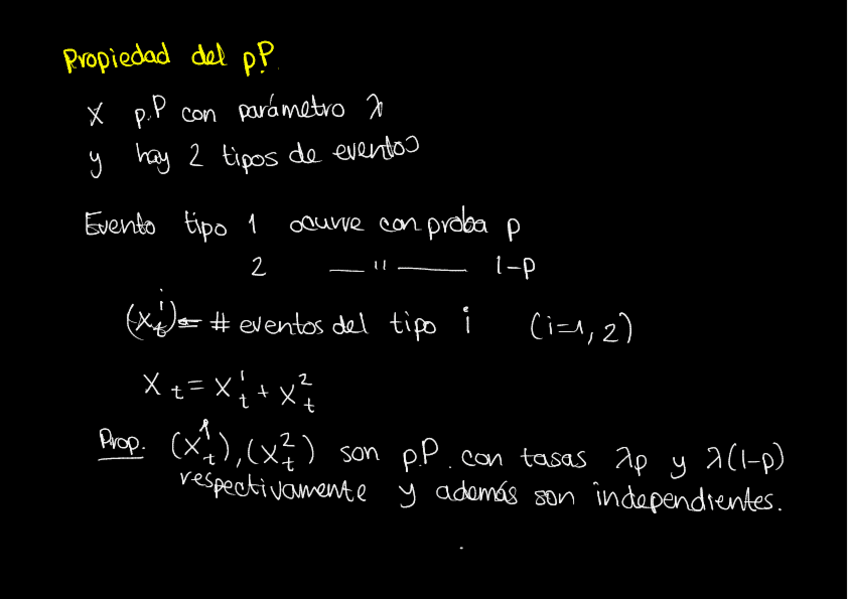 Propiedad del p.P.
X p.P con parámetro λ
y hay 2 tipos de eventos
Evento tipo 1 ocurre con proba p
2 — " — 1-p
(X_t^i) = # eventos del tipo i (i=1, 2)
X_t = X_t^1 + X_t^2
Prop. (X_t^1), (X_t^2) son p.P. con tasas λp y λ(1-p)
respectivamente y además son independientes.